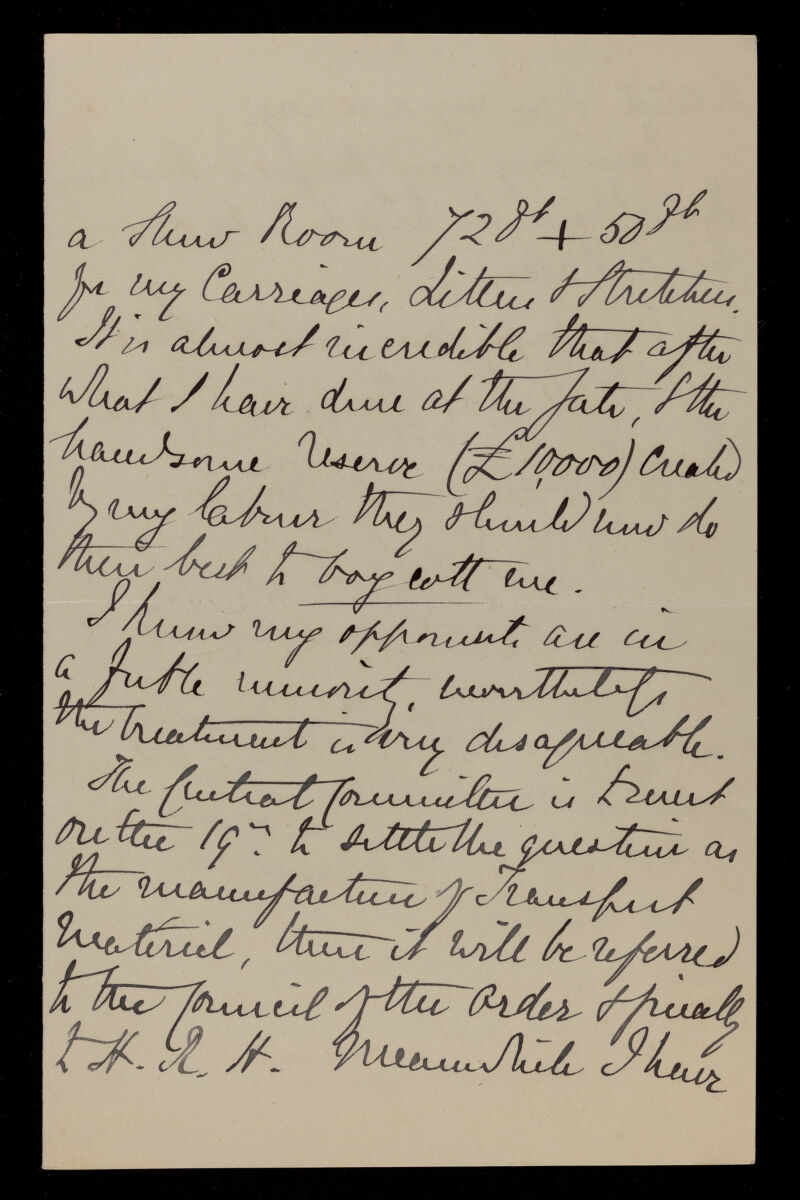 a Show Room 72 ft + 50 ft
for my Carriages, Litters & Stretchers.
It is almost incredible that after
what I have done at the Gate, & the
handsome reserve (£10,000) created
by my labour they should now do
their best to boycott me.
I know my opponents are in
a feeble minority, nevertheless
the treatment is very disagreeable.
The Central Committee is to meet
on the 19th. to settle the question as
the manufacture of Transport
Matériel, then it will be referred
to the Council of the Order & finally
to H. R. H. Meanwhile I have